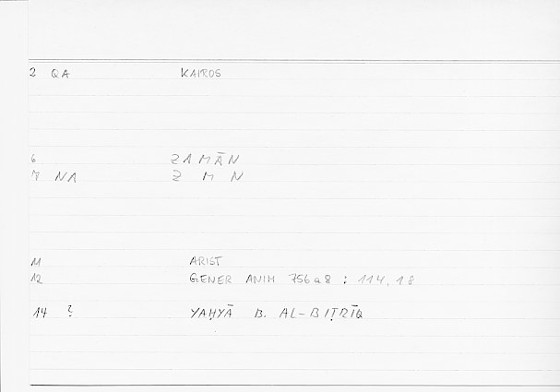 2 QA KAIROS
6 ZAMĀN
7 NA Z M N
11 ARIST
12 GENER ANIM 756a8 : 114,18
14 ? YAḤYĀ B. AL-BIṬRĪQ